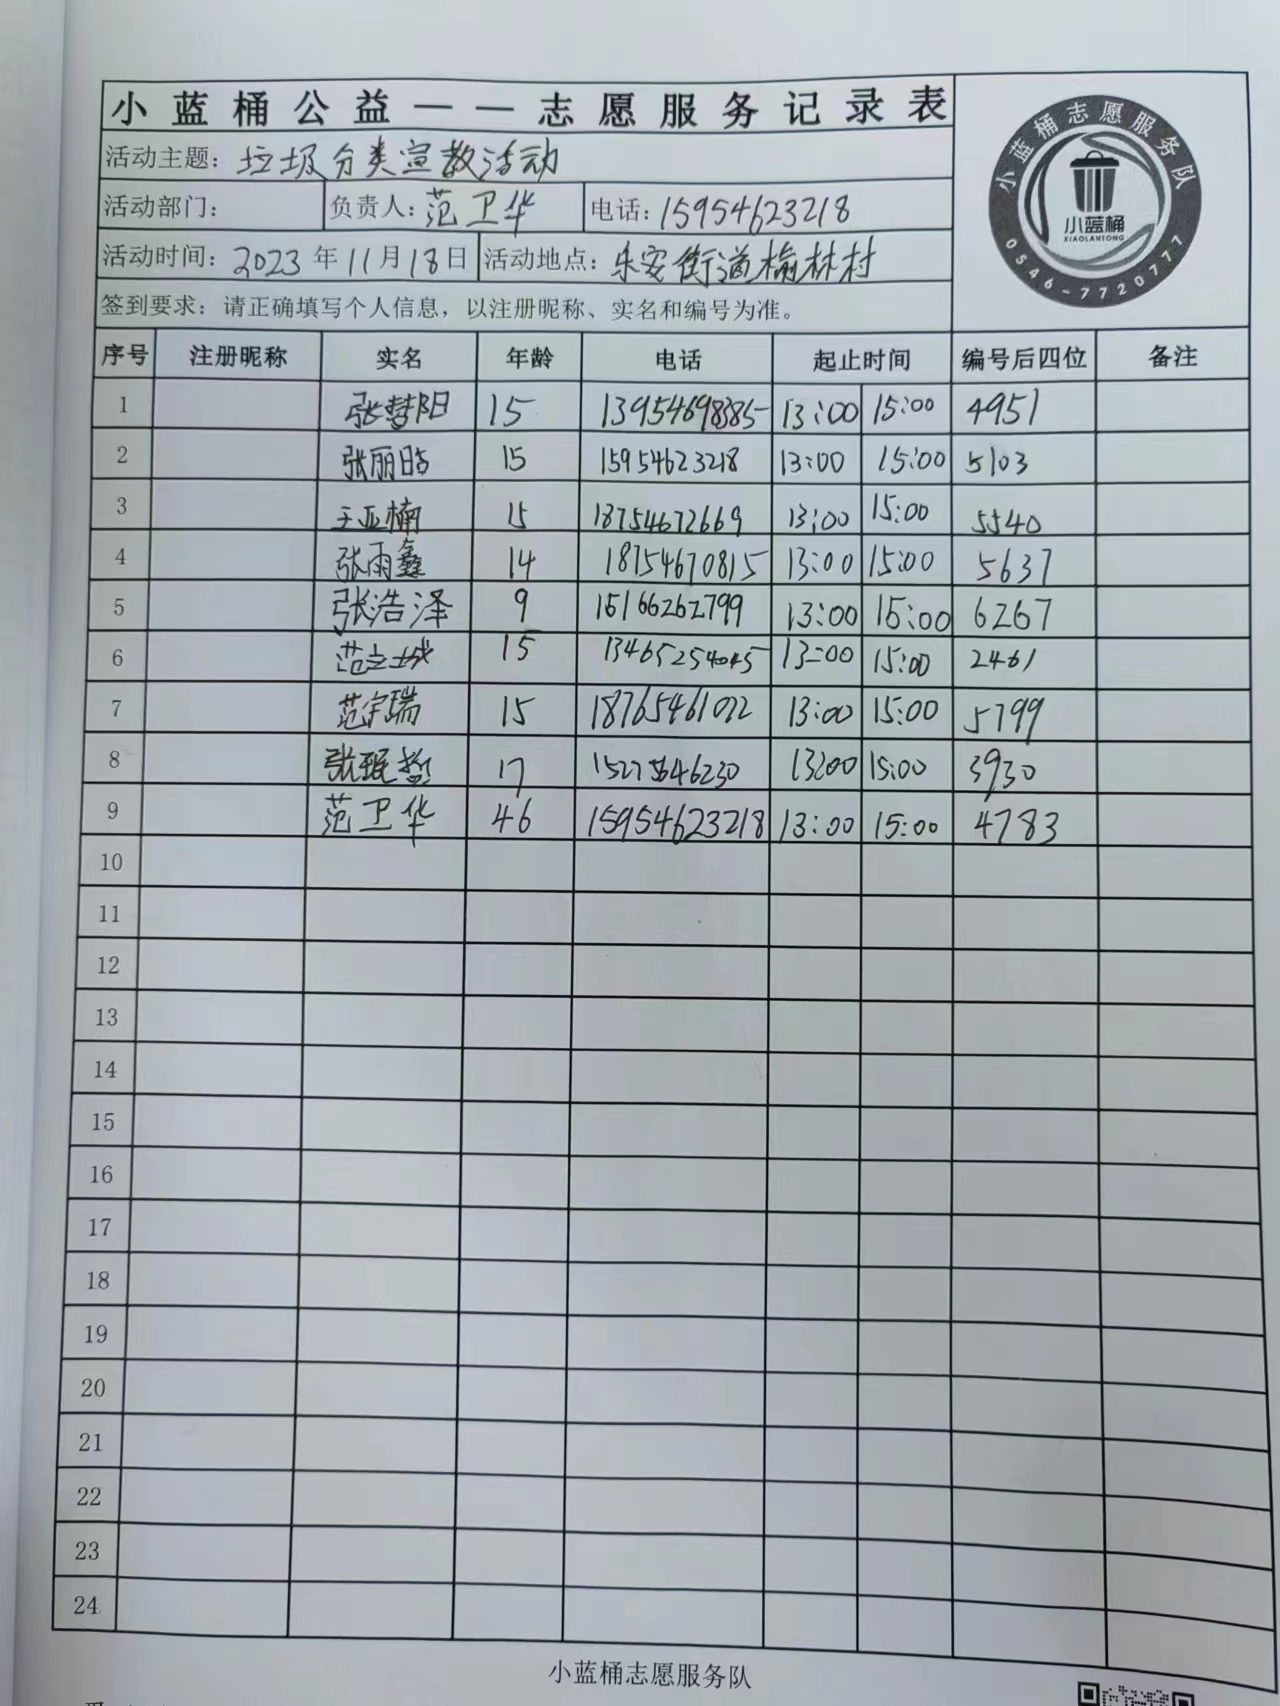 小蓝桶公益——志愿服务记录表
活动主题：垃圾分类宣教活动
活动部门： 负责人：范卫华 电话：15954623218
活动时间：2023年11月18日 活动地点：乐安街道榆林村
签到要求：请正确填写个人信息，以注册昵称、实名和编号为准。
小蓝桶志愿服务队
小蓝桶
XIAOLANTONG
0546-7720777
序号 注册昵称 实名 年龄 电话 起止时间 编号后四位 备注
1 张梦阳 15 13:00 15:00 4951
2 张丽 15 15954623218 13:00 15:00 5103
3 王亚楠 15 18754672669 13:00 15:00 5540
4 张雨鑫 14 18754670815 13:00 15:00 5637
5 张浩泽 9 15166262799 13:00 15:00 6267
6 范 15 13465254045 13:00 15:00 2461
7 范宇瑞 15 18765461022 13:00 15:00 5799
8 张 17 13:00 15:00 3930
9 范卫华 46 15954623218 13:00 15:00 4783
10
11
12
13
14
15
16
17
18
19
20
21
22
23
24
小蓝桶志愿服务队